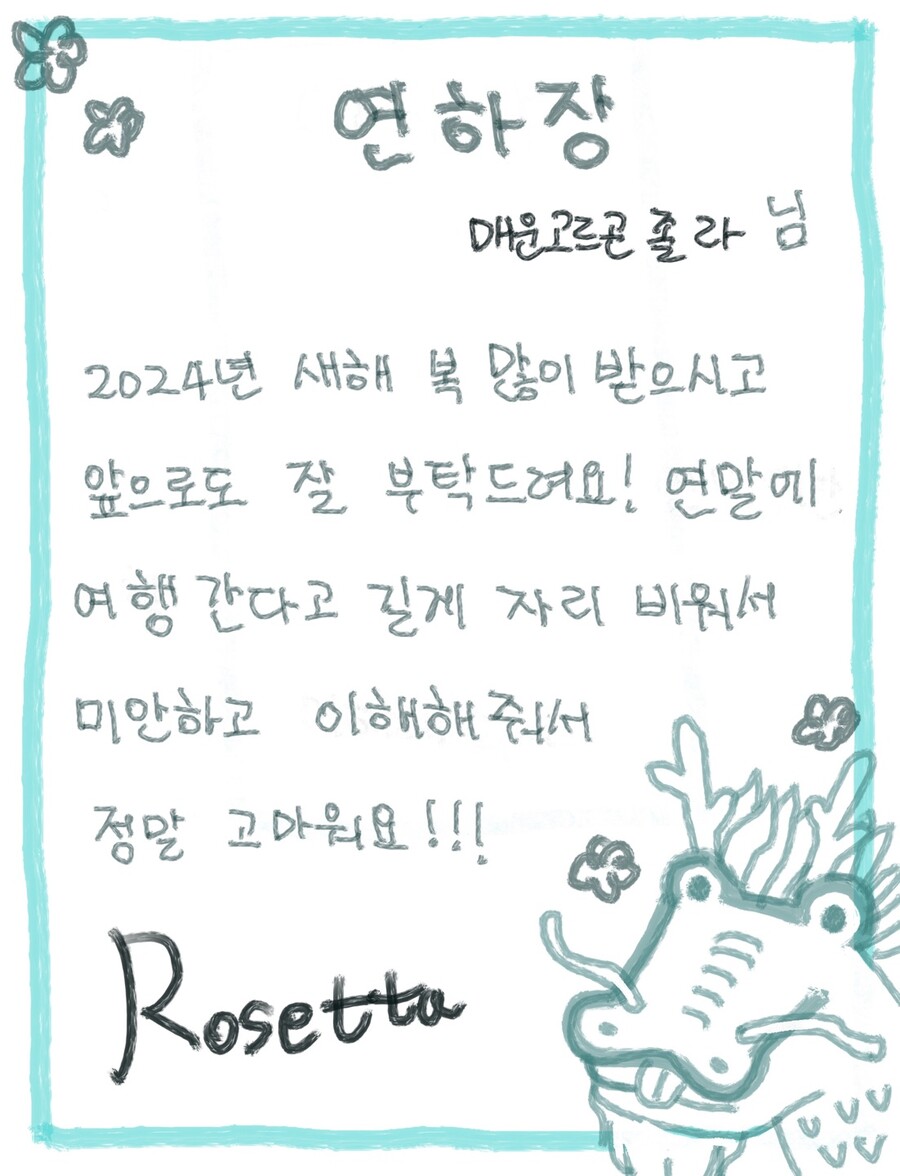 연하장
매운고르곤졸라 님
2024년 새해 복 많이 받으시고
앞으로도 잘 부탁드려요! 연말에
여행 간다고 길게 자리 비워서
미안하고 이해해줘서
정말 고마워요!!!
Rosetta